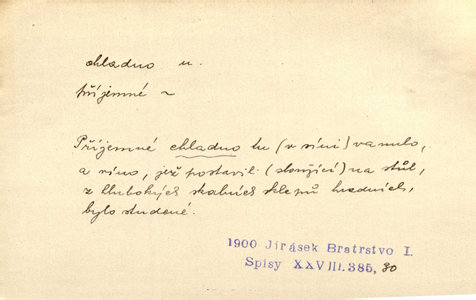 chladno n.
příjemné ~
Příjemné chladno tu (v síni) vanulo,
a víno, jež postavil (sloužící) na stůl,
z hlubokých skalních sklepů hradních,
bylo studené.
1900 Jirásek Bratrstvo I.
Spisy XXVIII.385, 30